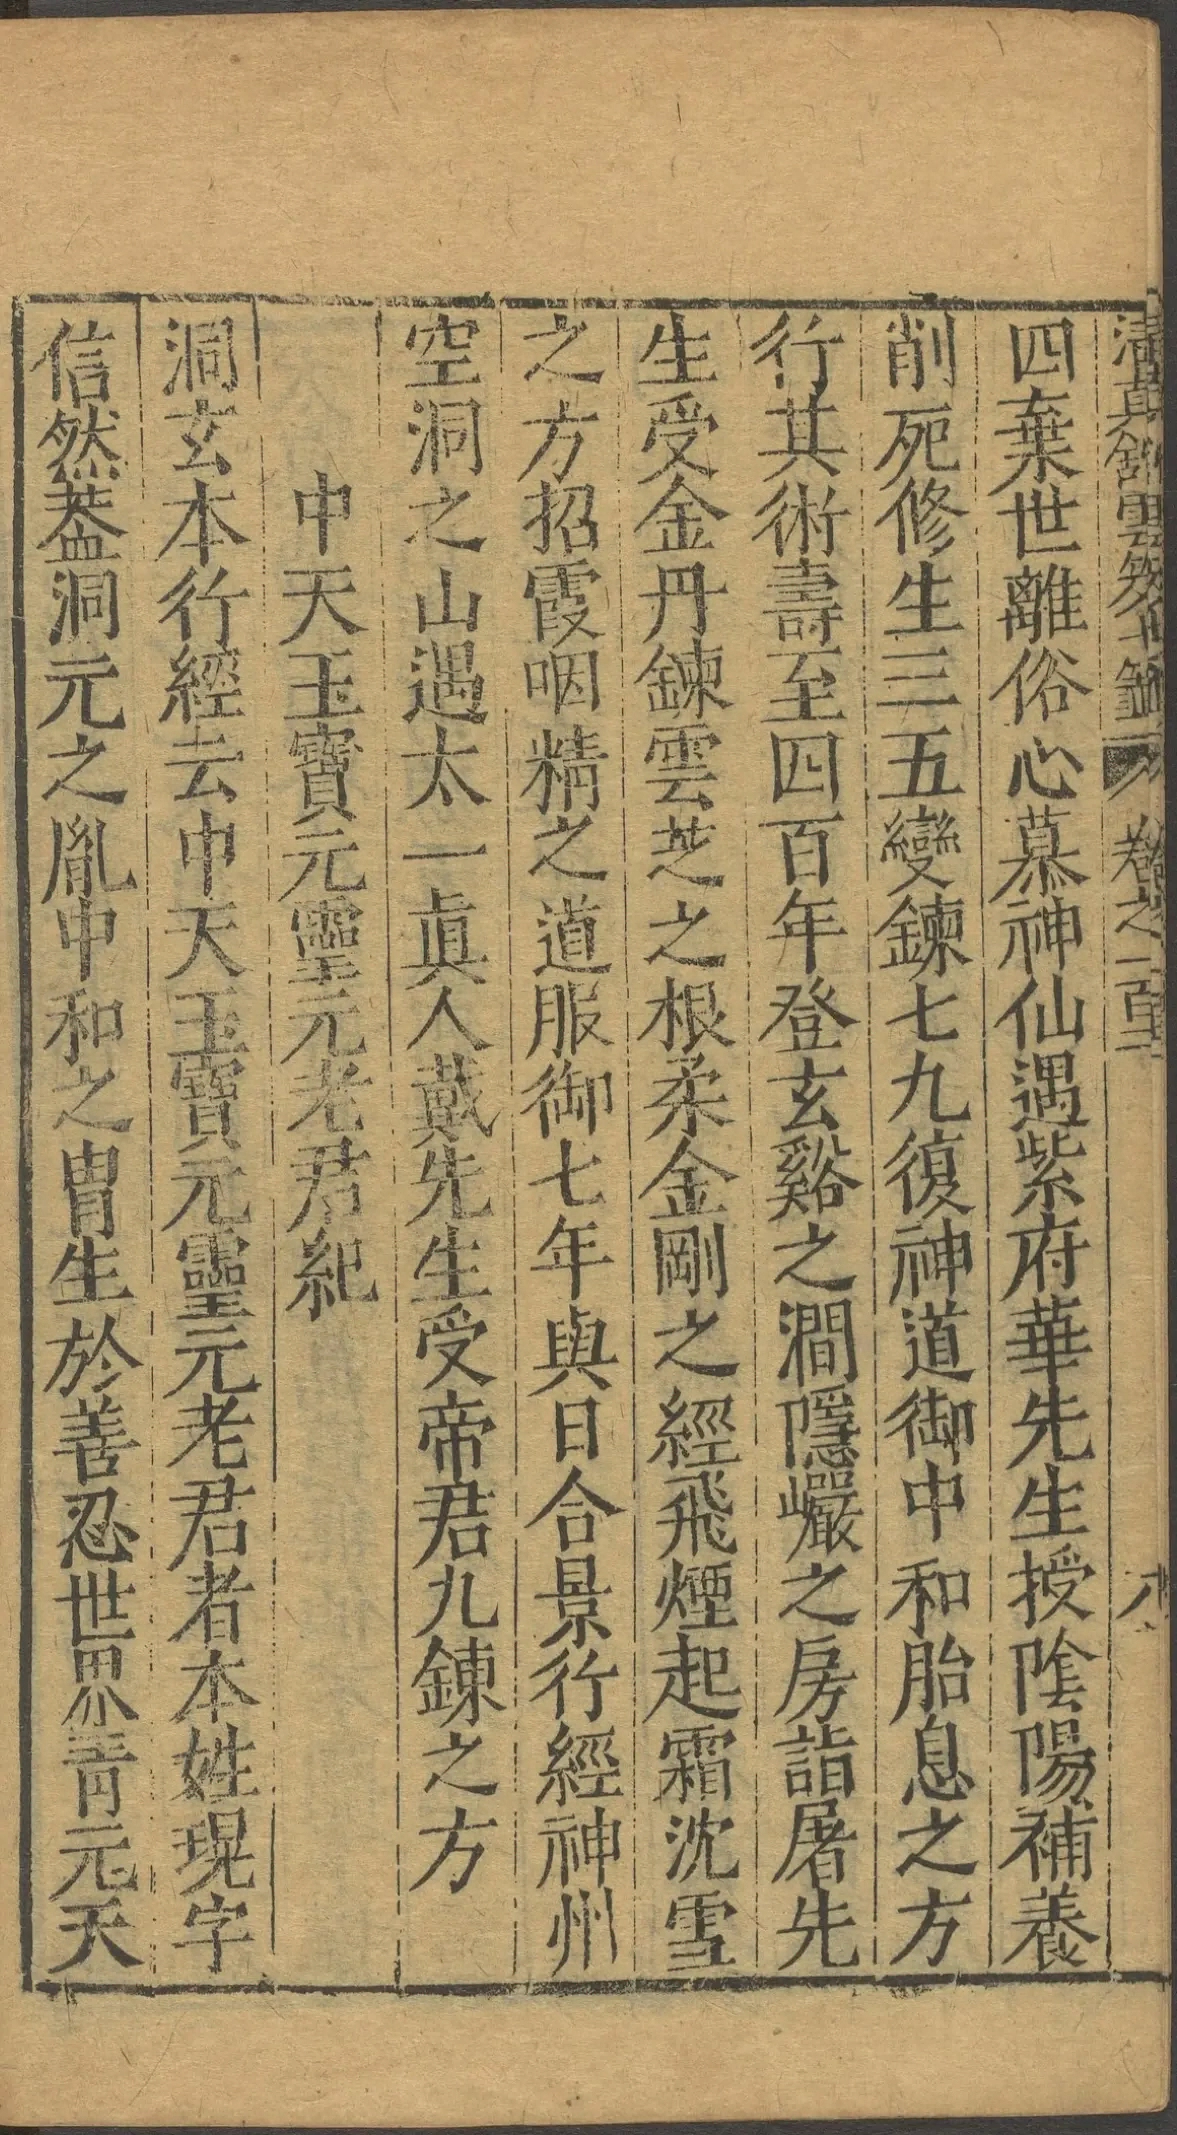 清真館雲笈七籤 卷之一百一 八
四棄世離俗心慕神仙遇紫府華先生授陰陽補養
削死修生三五變鍊七九復神道御中和胎息之方
行其術壽至四百年登玄谿之澗隱巖之房詣屠先
生受金丹鍊雲芝之根柔金剛之經飛煙起霜沈雪
之方招霞咽精之道服御七年與日合景行經神州
空洞之山遇太一真人戴先生受帝君九鍊之方
中天玉寶元靈元老君紀
洞玄本行經云中天玉寶元靈元老君者本姓現字
信然葢洞元之胤中和之冑生於善忍世界青元天